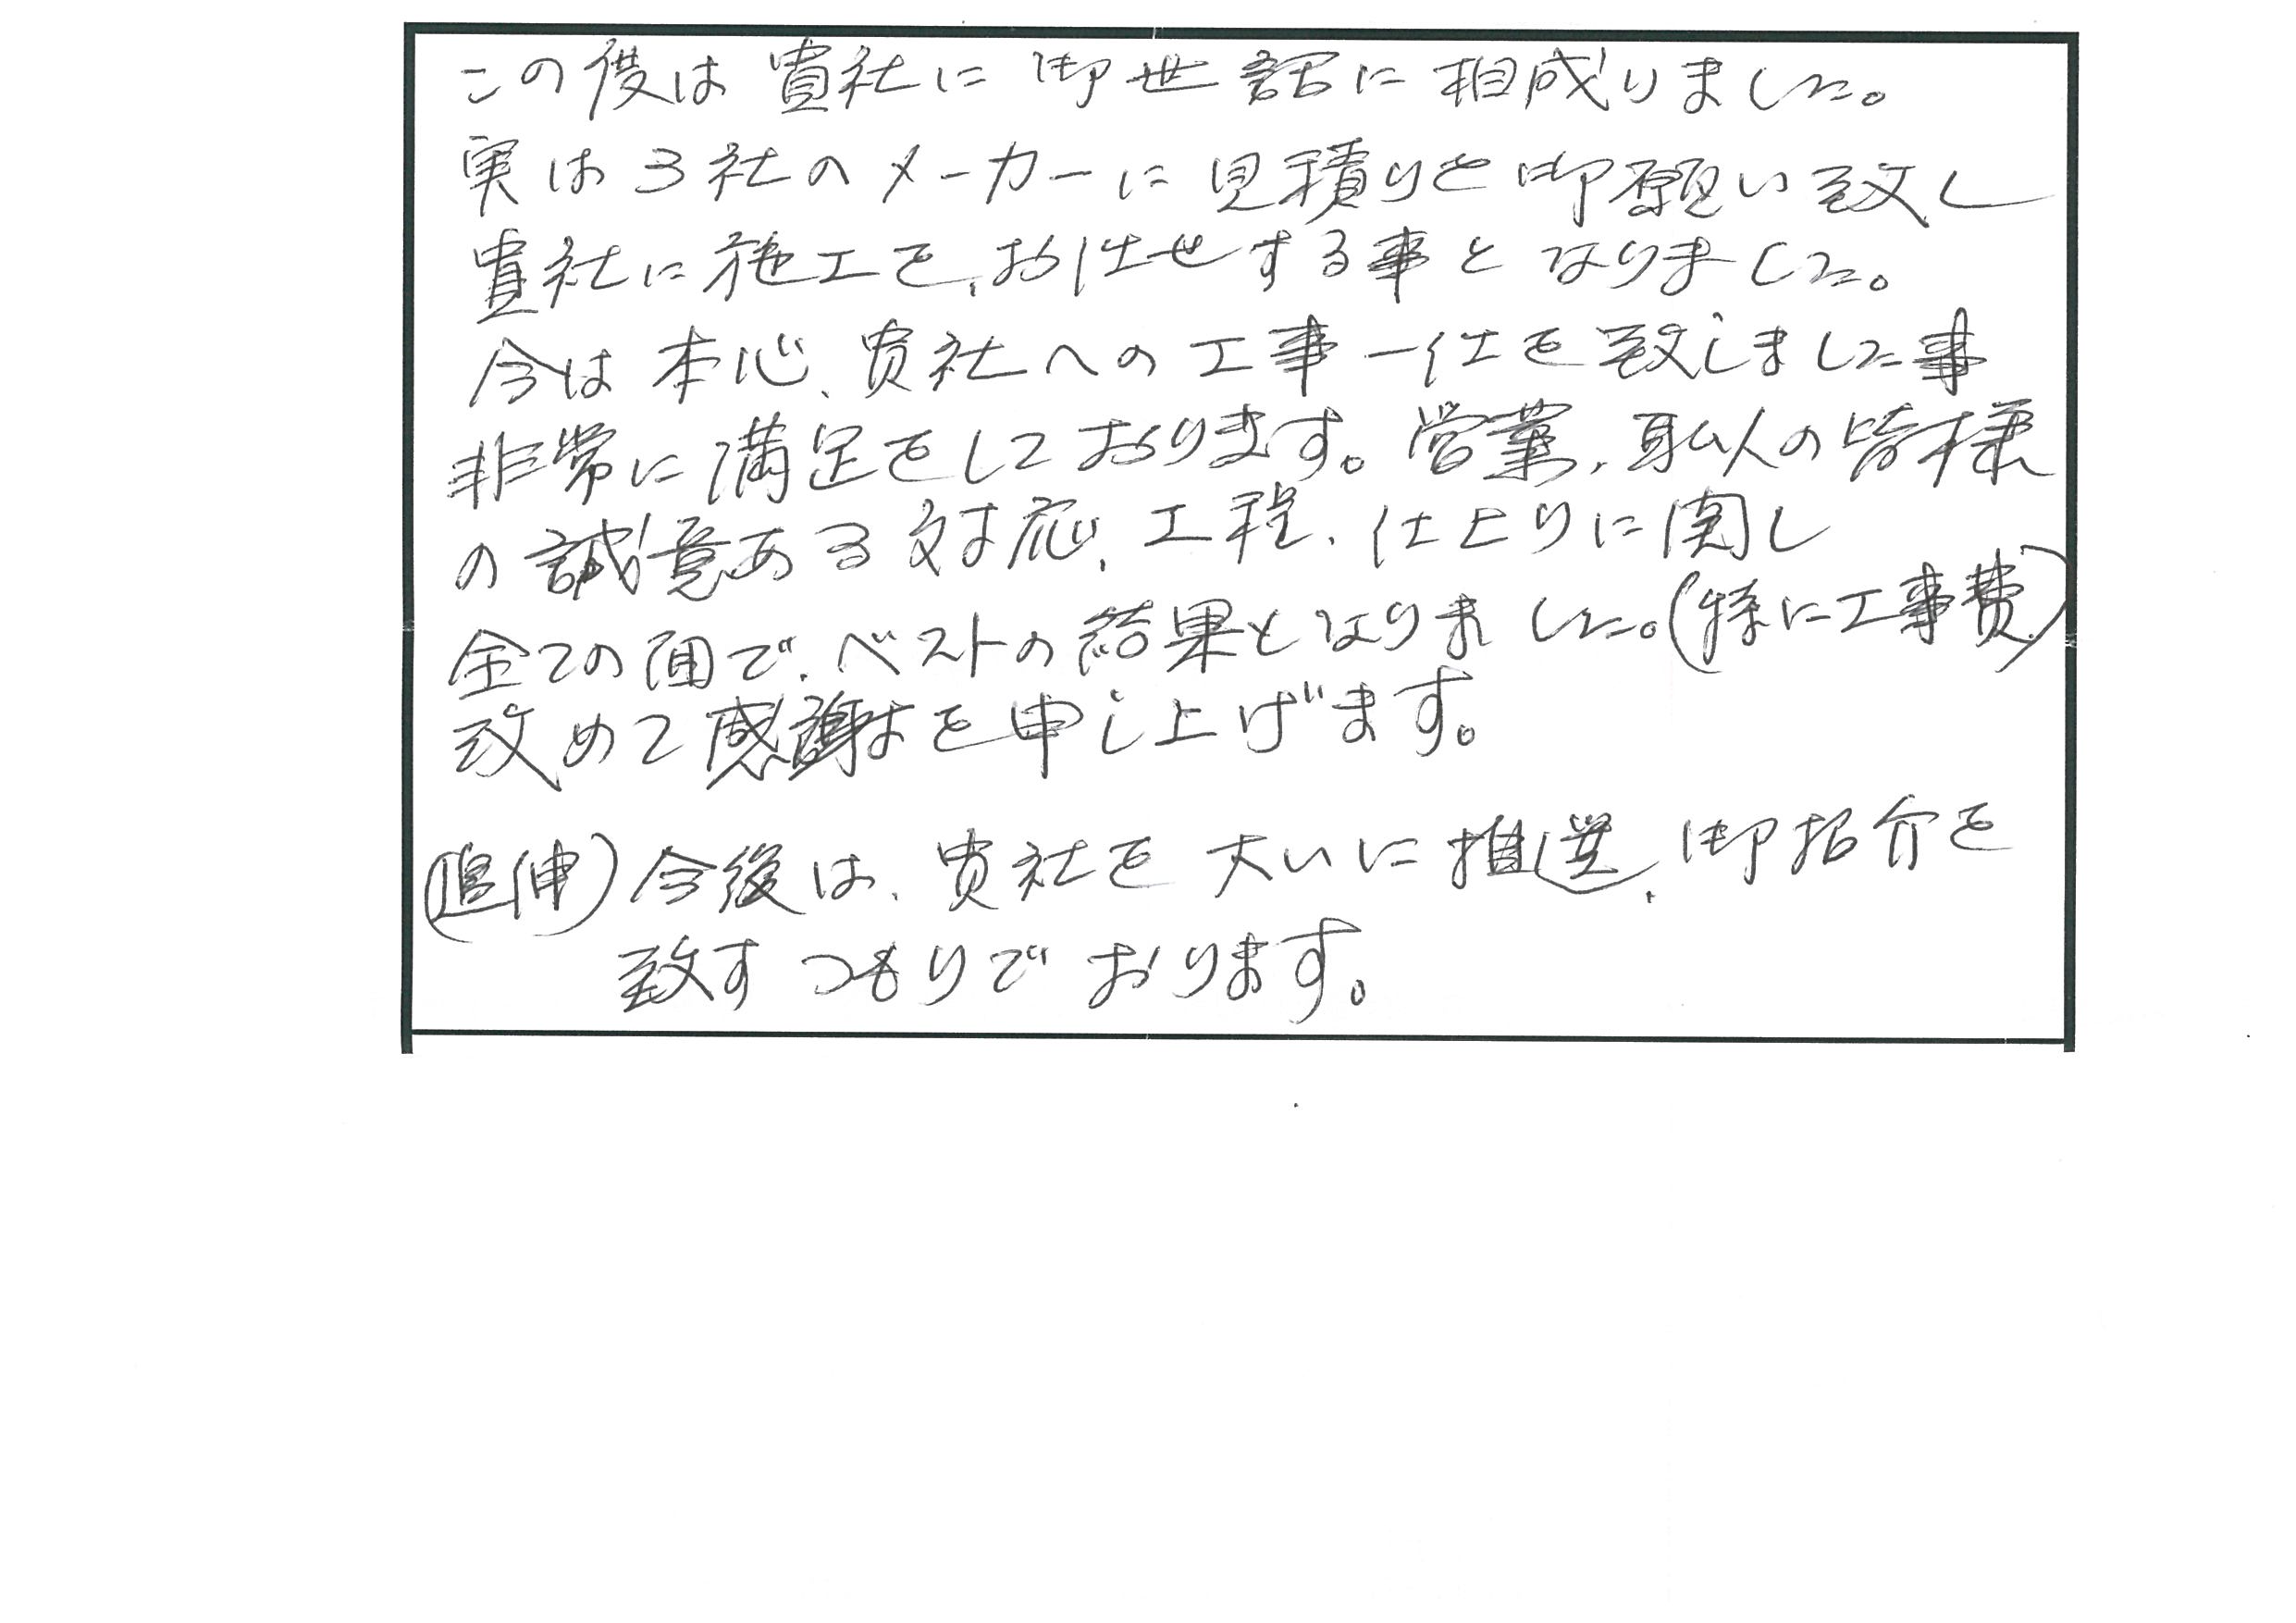 この度は貴社に御世話に相成りました。
実は3社のメーカーに見積りを御願い致し
貴社に施工を、お任せする事となりました。
今は本心、貴社への工事一任を致しました事
非常に満足をしております。営業、職人の皆様
の誠意ある対応、工程、仕上りに関し
全ての面で、ベストの結果となりました。(特に工事費)
改めて感謝を申し上げます。
(追伸)今後は、貴社を大いに推選、御紹介を
致すつもりでおります。